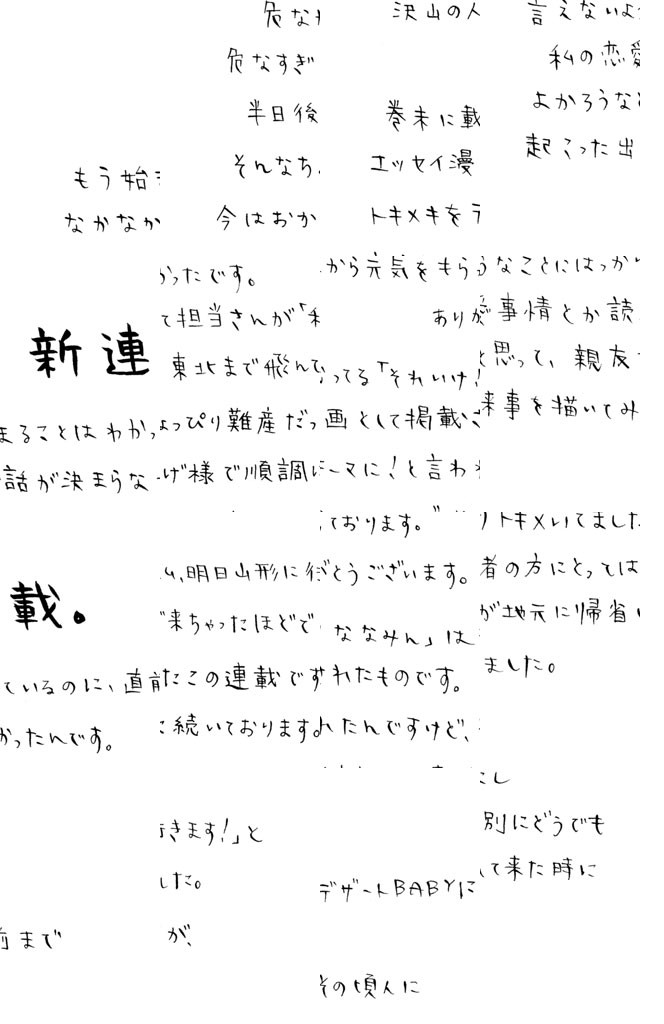 危な
沢山の人
言えないよ
危なすぎ
私の恋愛
半日後
巻末に載
よかろうな
もう始
そんなち
エッセイ漫
起こった出
なかなか
今はおか
トキメキをラ
ったです。
から元気をもらうなことにはっか
て担当さんが「私
ありが事情とか読
新連
東北まで飛んでってる「それいけ
と思って、親友
まることはわかっよっぴり難産だっ画として掲載
来事を描いてみ
話が決まらなげ様で順調にーマに!と言わ
ております。
トキメいてました
載。
明日山形に行とうございます。者の方にとっては
来ちゃったほどで
ななみん」は
が地元に帰省
ているのに、直前たこの連載でずれたものです。
ました。
かったんです。
続いておりますれたんですけど、
にし
きます!」と
別にどうでも
した。
デザートBABYに
て来た時に
前まで
が、
その頃人に